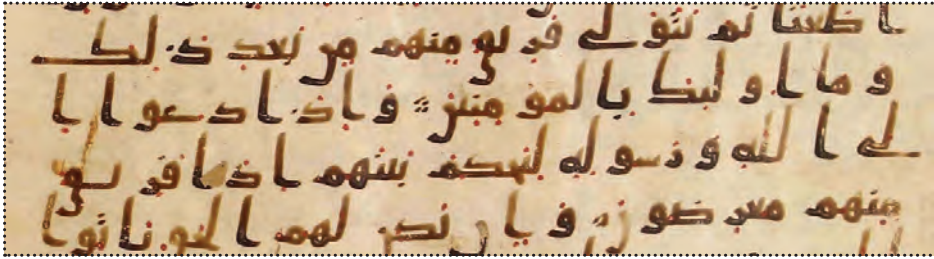 ا طعنا ثم يتو لى فر يق منهم من بعد ذ لك
و ما ا و لئك با لمؤ منين و ا ذ ا د عوا ا
لى ا لله و ر سو له ليحكم بينهم ا ذ ا فر يق
منهم معر ضو ن و ا ن يكن لهم ا لحق يا تو ا